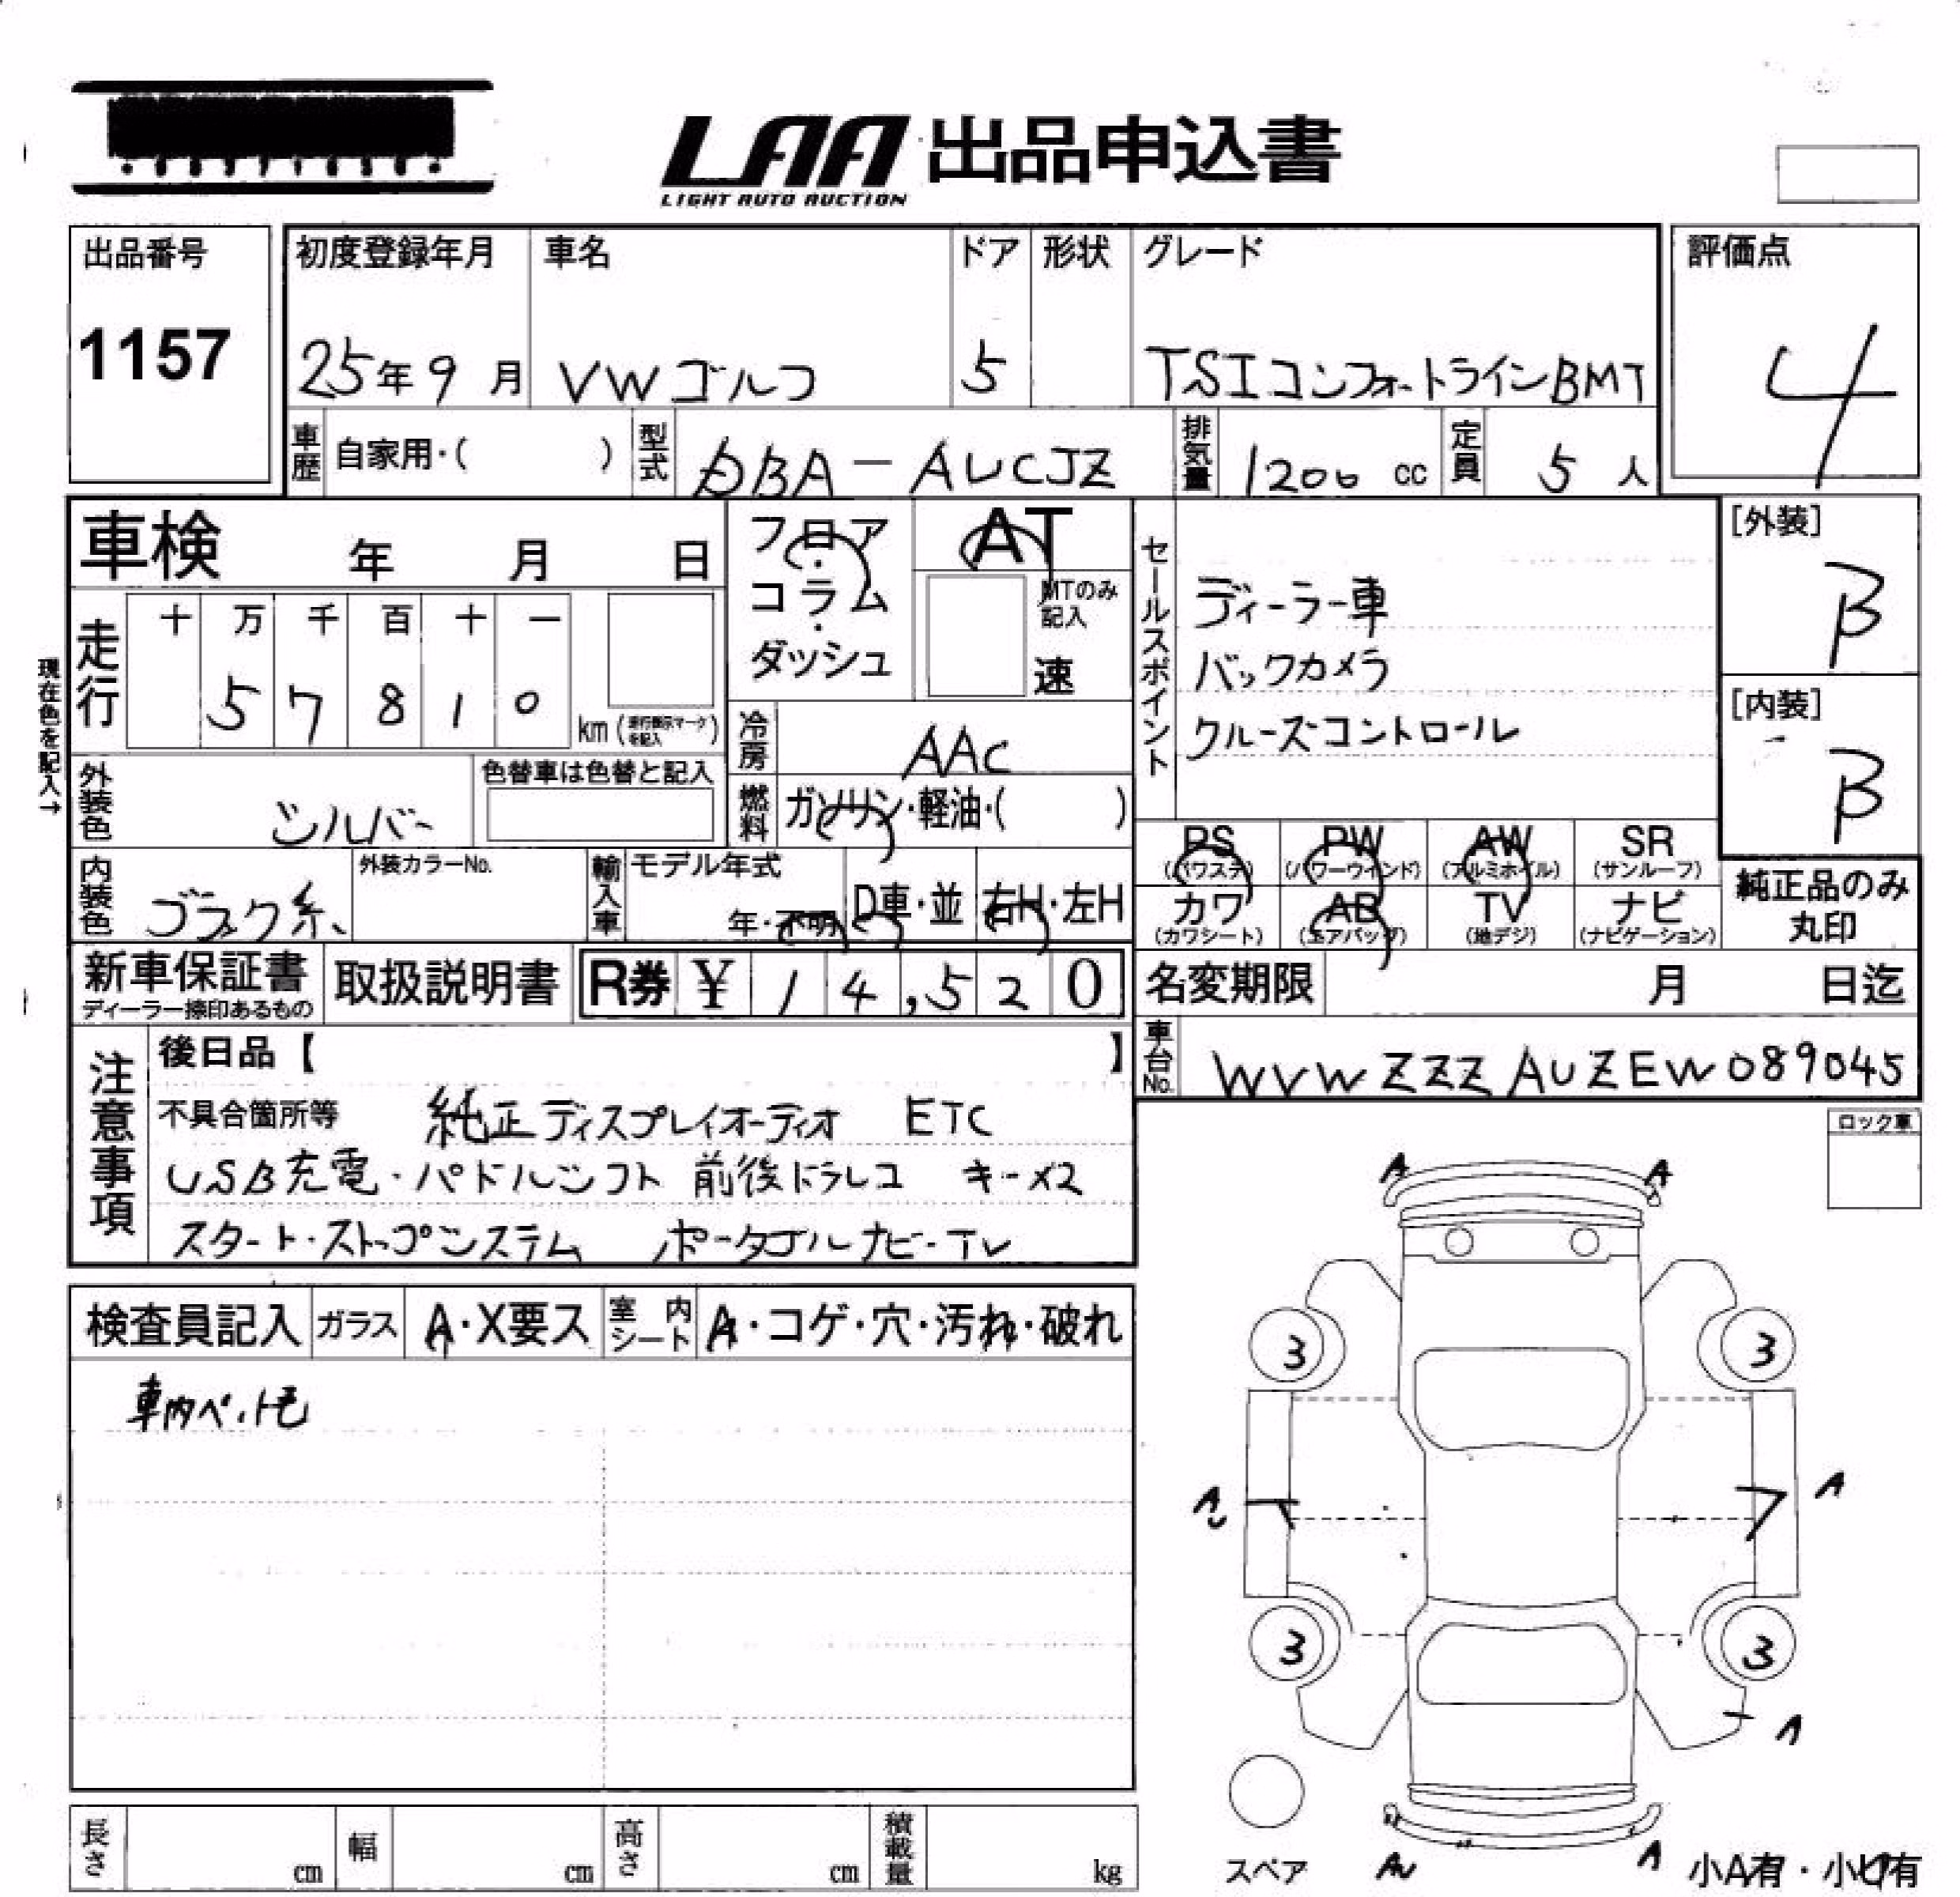 LAA 出品申込書
LIGHT AUTO AUCTION
出品番号
1157
初度登録年月
25年9月
車名
VWゴルフ
ドア
5
形状
グレード
TSIコンフォートラインBMT
評価点
4
車歴 自家用・( )
型式 DBA-AUCJZ
排気量 1200 cc
定員 5人
車検 年 月 日
フロア・コラム・ダッシュ
AT
MTのみ記入
速
セールスポイント
ディーラー車
バックカメラ
クルーズコントロール
[外装]
B
[内装]
B
現在色を記入→
走行
十 万 千 百 十 一
5 7 8 1 0
km (走行表示マークを記入)
冷房 AAC
外装色 シルバー
色替車は色替と記入
燃料 ガソリン・軽油・( )
PS (パワステ)
PW (パワーウィンド)
AW (アルミホイル)
SR (サンルーフ)
カワ (カワシート)
AB (エアバッグ)
TV (地デジ)
ナビ (ナビゲーション)
純正品のみ丸印
内装色 ブラック系
外装カラーNo.
輸入車
モデル年式
年・不明
D車・並
右H・左H
新車保証書
ディーラー捺印あるもの
取扱説明書
R券 ¥ 14,520
名変期限 月 日迄
車台No. WVWZZZAUZEW089045
注意事項
後日品【 】
不具合箇所等 純正ディスプレイオーディオ ETC
USB充電・パドルシフト 前後ドラレコ キー×2
スタート・ストップシステム ポータブルナビ・TV
ロック車
検査員記入
ガラス A・X要ス
室内シート A・コゲ・穴・汚れ・破れ
車内ペット毛
A A
3 3
A
3 3
A
スペア
A
小A有・小U有
長さ cm
幅 cm
高さ cm
積載量 kg